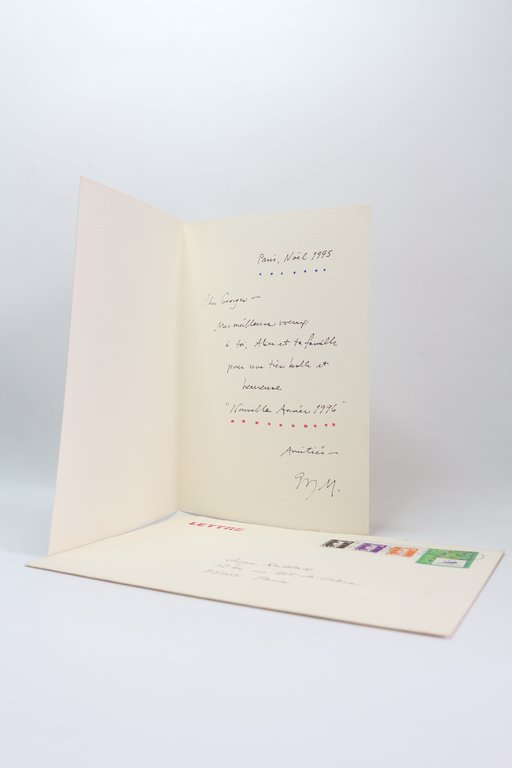 Paris, Noël 1995
Cher Georges —
Mes meilleurs vœux
à toi, et ta famille
pour une très belle et
heureuse
"Nouvelle Année 1996"
Amitiés —
LETTRE
Paris